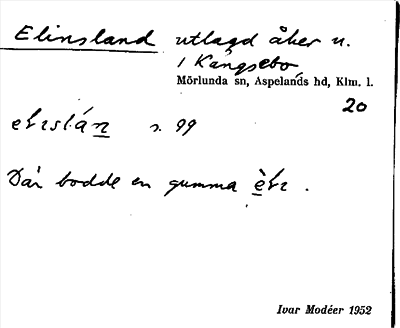 Elinsland utlagd åker n.
i Kångsebo
Mörlunda sn, Aspelands hd, Klm. l.
20
s. 99
Där bodde en gumma
Ivar Modéer 1952